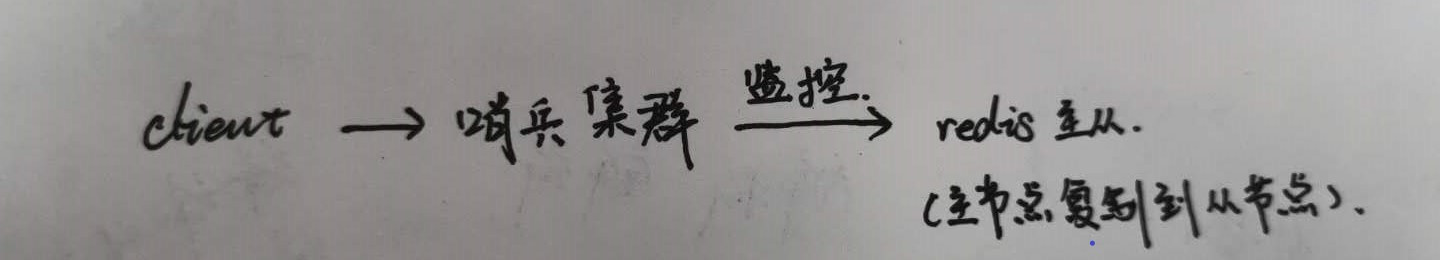 client → 哨兵集群 监控. → redis 主从.
(主节点复制到从节点).